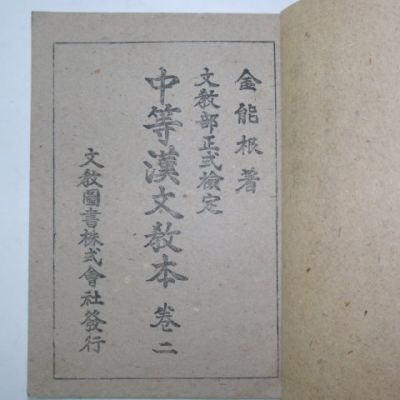 金能根著
文敎部正式檢定
中等漢文敎本 卷二
文敎圖書株式會社發行